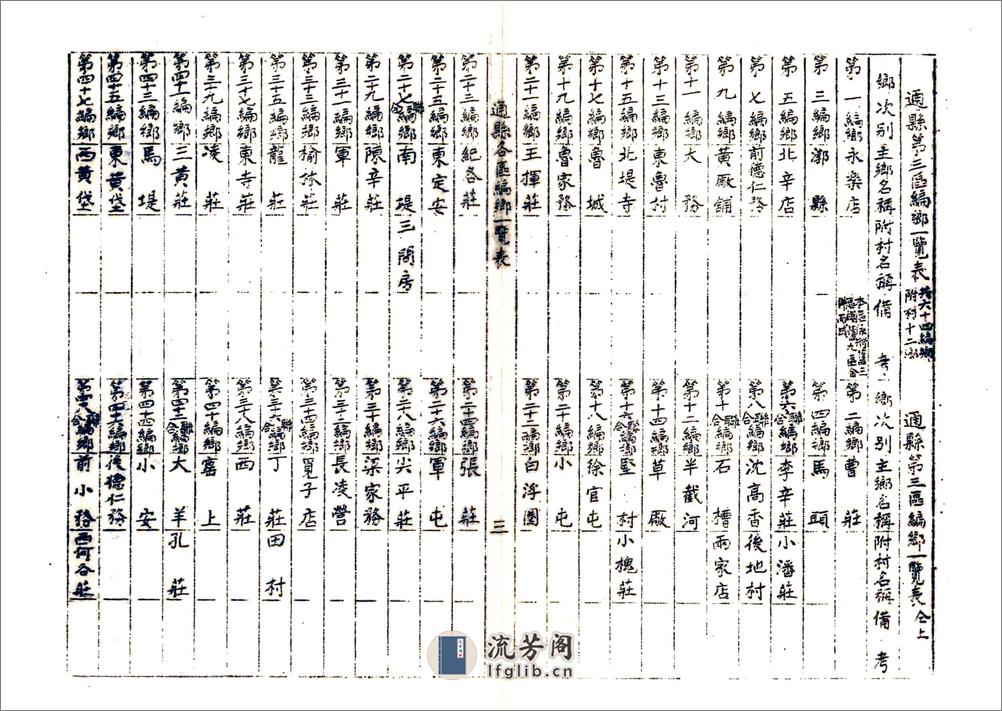 通縣第三區編鄉一覽表 共六十四編鄉 附村十二
鄉次別 主鄉名稱 附村名稱 備考
第一編鄉 永樂店
第三編鄉 漷縣
第五編鄉 北辛店
第七編鄉 前德仁務
第九編鄉 黃廠鋪
第十一編鄉 大務
第十三編鄉 東魯村
第十五編鄉 北堤寺
第十七編鄉 魯城
第十九編鄉 魯家務
第二十一編鄉 王揮莊
通縣第三區編鄉一覽表 仝上
鄉次別 主鄉名稱 附村名稱 備考
第二編鄉 曹莊
第四編鄉 馬頭
第六聯合編鄉 李辛莊 小潘莊
第八聯合編鄉 沈高香 後地村
第十聯合編鄉 石槽 兩家店
第十二編鄉 半截河
第十四編鄉 草廠
第十六聯合編鄉 堅村 小槐莊
第十八編鄉 徐官屯
第二十編鄉 小屯
第二十二編鄉 白浮圈
通縣各區編鄉一覽表
三
第二十三編鄉 紀各莊
第二十五編鄉 東定安
第二十七聯合編鄉 南堤 三間房
第二十九編鄉 陳辛莊
第三十一編鄉 軍莊
第三十三編鄉 榆林莊
第三十五編鄉 龍莊
第三十七編鄉 東寺莊
第三十九編鄉 凌莊
第四十一編鄉 三黃莊
第四十三編鄉 馬堤
第四十五編鄉 東黃垡
第四十七編鄉 西黃垡
第二十四編鄉 張莊
第二十六編鄉 軍屯
第二十八編鄉 尖平莊
第三十編鄉 梁家務
第三十二編鄉 長凌營
第三十四編鄉 覓子店
第三十六聯合編鄉 丁莊 田村
第三十八編鄉 西莊
第四十編鄉 窑上
第四十二聯合編鄉 大羊 孔莊
第四十四編鄉 小安
第四十六編鄉 後德仁務
第四十八聯合編鄉 前小務 西何各莊
流芳阁
lfglib.cn